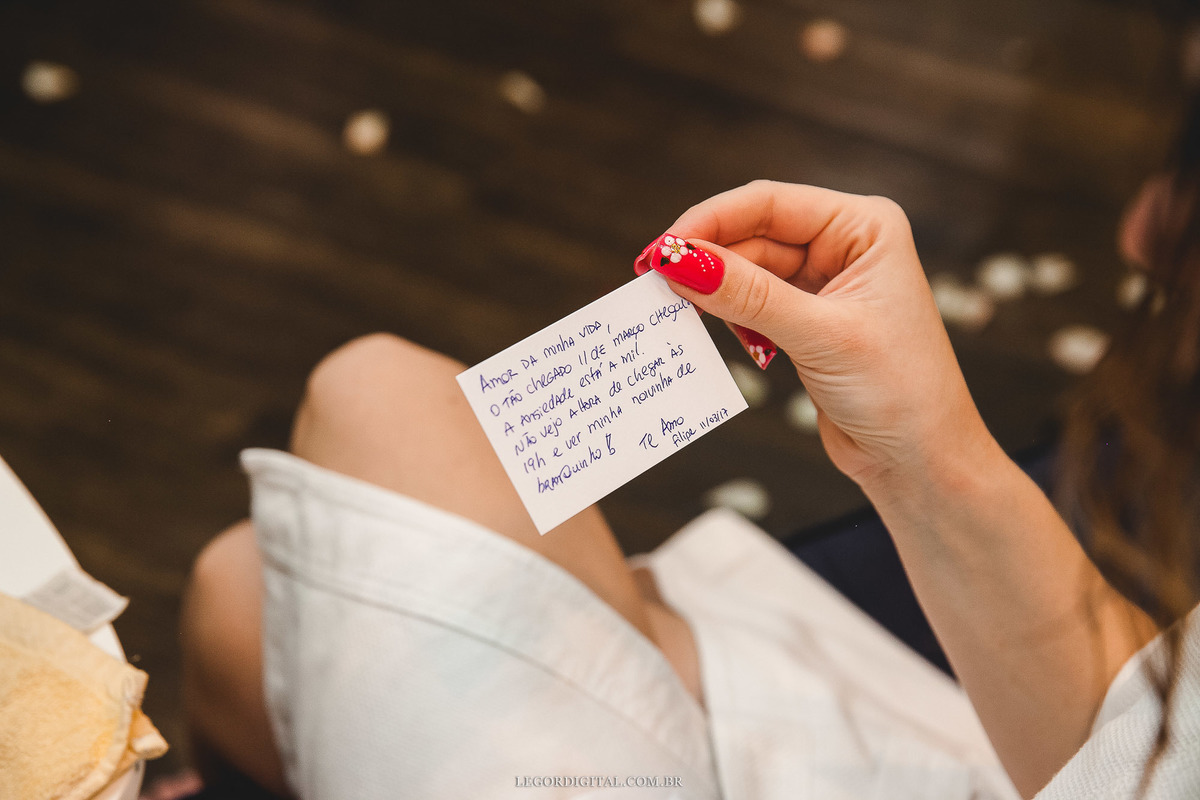 AMOR DA minha VIDA,
O TÃO chegado 11 de março chegou
A Ansiedade está A mil.
NÃO vejo A hora de chegar às
19h e ver minha noivinha de
branquinho!!
Te Amo
Filipe 11/03/17
LEGORDIGITAL.COM.BR